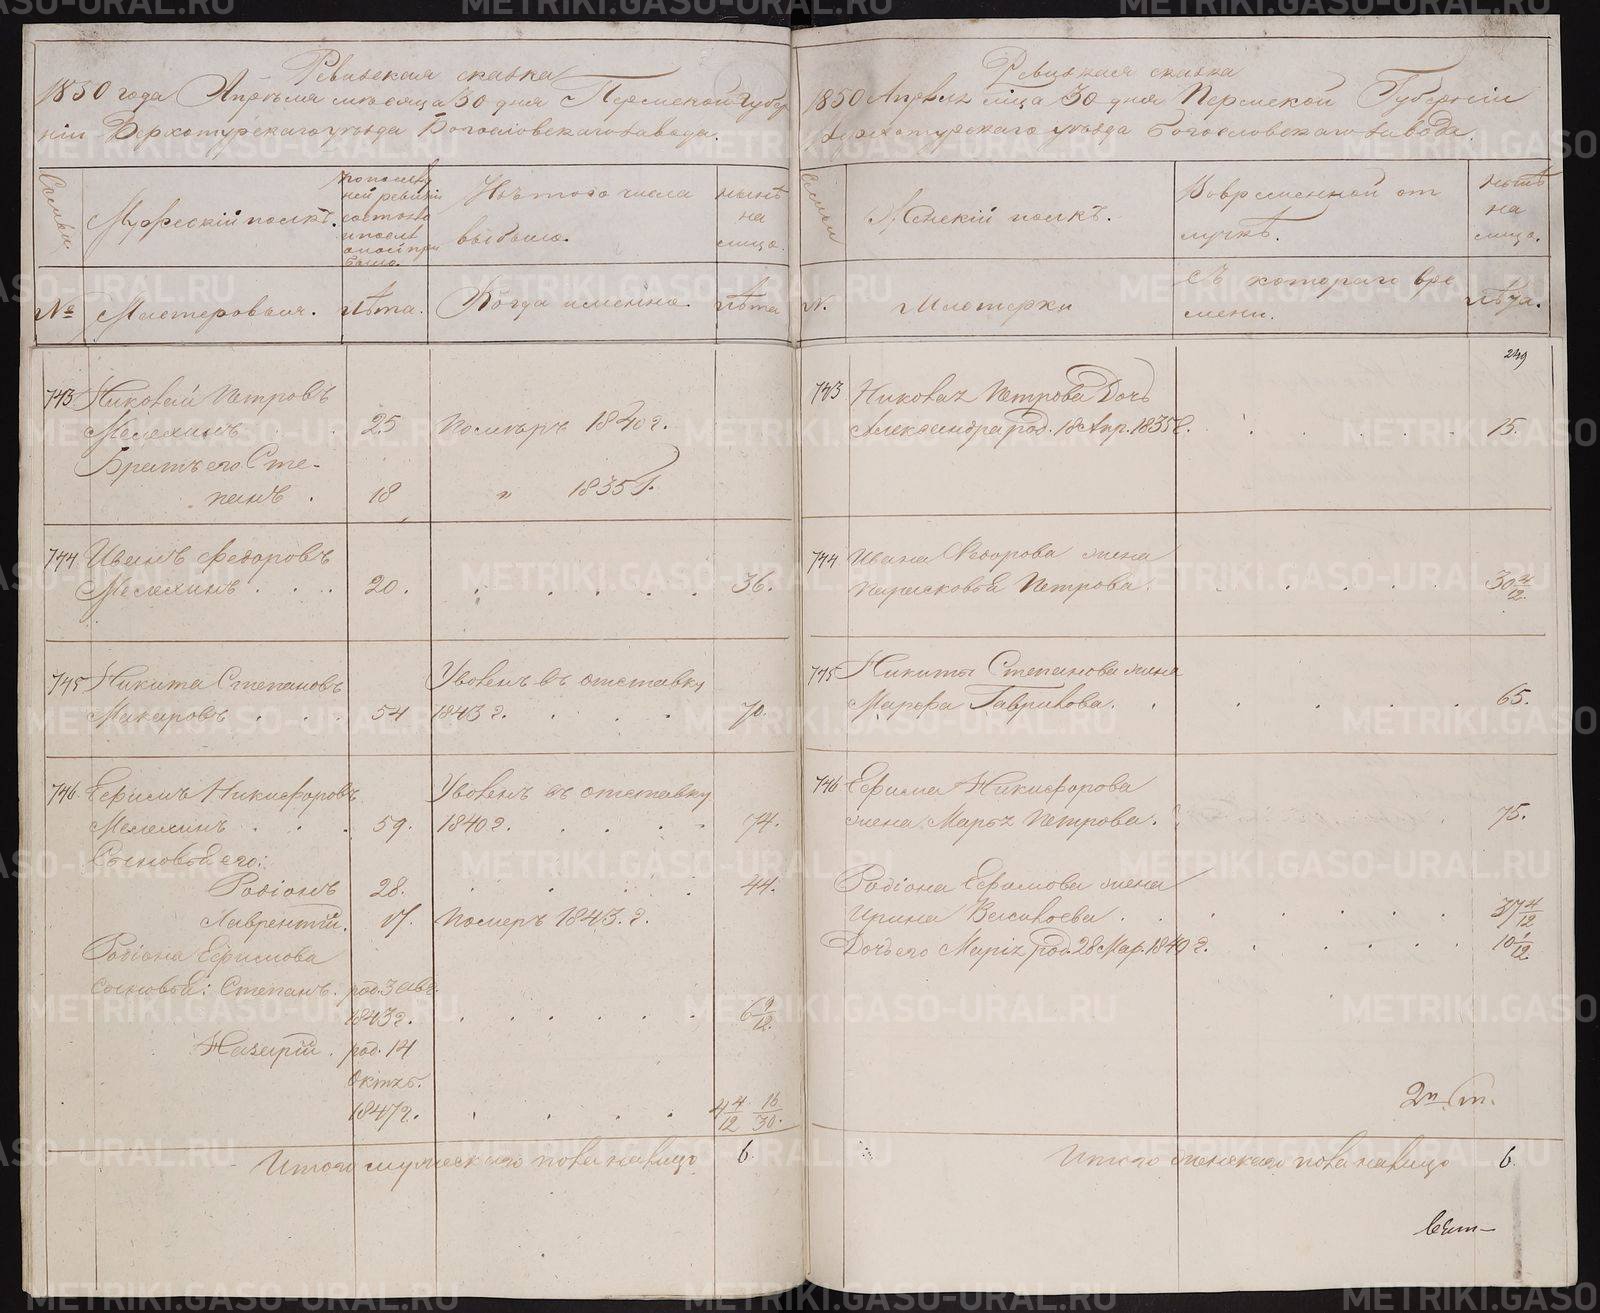 Ревизская сказка
1850 года Апреля месяца 30 дня Пермской Губер
ніи Верхотурскаго уезда Богословскаго завода.
Семьи
Мужескій полъ.
по послед
ней ревизіи
состояло
и после
оной при
было.
Изъ того числа
выбыло.
ныне
на
лицо.
№
Мастеровыя.
Лета.
Когда именно.
лета
743 Николай Петровъ
Мелехинъ . . 25 Померъ 1840 г.
Братъ его Сте-
панъ . 18 " 1835 г.
744 Иванъ Федоровъ
Мелехинъ . . . 20 . . . . . . . 36.
745 Никита Степановъ Уволенъ въ отставку
Макаровъ . . . 54 1843 г. . . . . 70.
746 Ефимъ Никифоровъ Уволенъ въ отставку
Мелехинъ . . . 59. 1840 г. . . . . 74.
Сыновья его:
Родіонъ 28. . . . . 44.
Лаврентій. 17. Померъ 1843. г.
Родіона Ефимова
сыновья: Степанъ. род. 3 Авг.
1843 г. . . . . . . 6 9/12.
Назарій. род. 14
Октяб.
1847 г. . . . . 4 4/12 16/30.
Итого мужеска пола на лицо 6.
Ревизская сказка
1850 Апреля м-ца 30 дня Пермской Губерніи
Верхотурскаго уезда Богословскаго завода.
Семьи
Женскій полъ.
Во временной от
лучкѣ.
ныне
на
лицо.
№.
Мастерки
Съ котораго вре
мени.
лета.
249
743 Николая Петрова Дочь
Александра род. 18 Апр. 1835 г. . . . . . . 15.
744 Ивана Федорова жена
Парасковья Петрова. . . . . . 30 4/12.
745 Никиты Степанова жена
Марфа Гаврилова. . . . . . 65.
746 Ефима Никифорова
жена Марья Петрова. . 75.
Родіона Ефимова жена
Ирина Васильева . . . . . . . 37 4/12
Дочь его Марія род. 28 Мар. 1840 г. . . . . . 10 1/12
Итого женскаго пола на лицо 6.